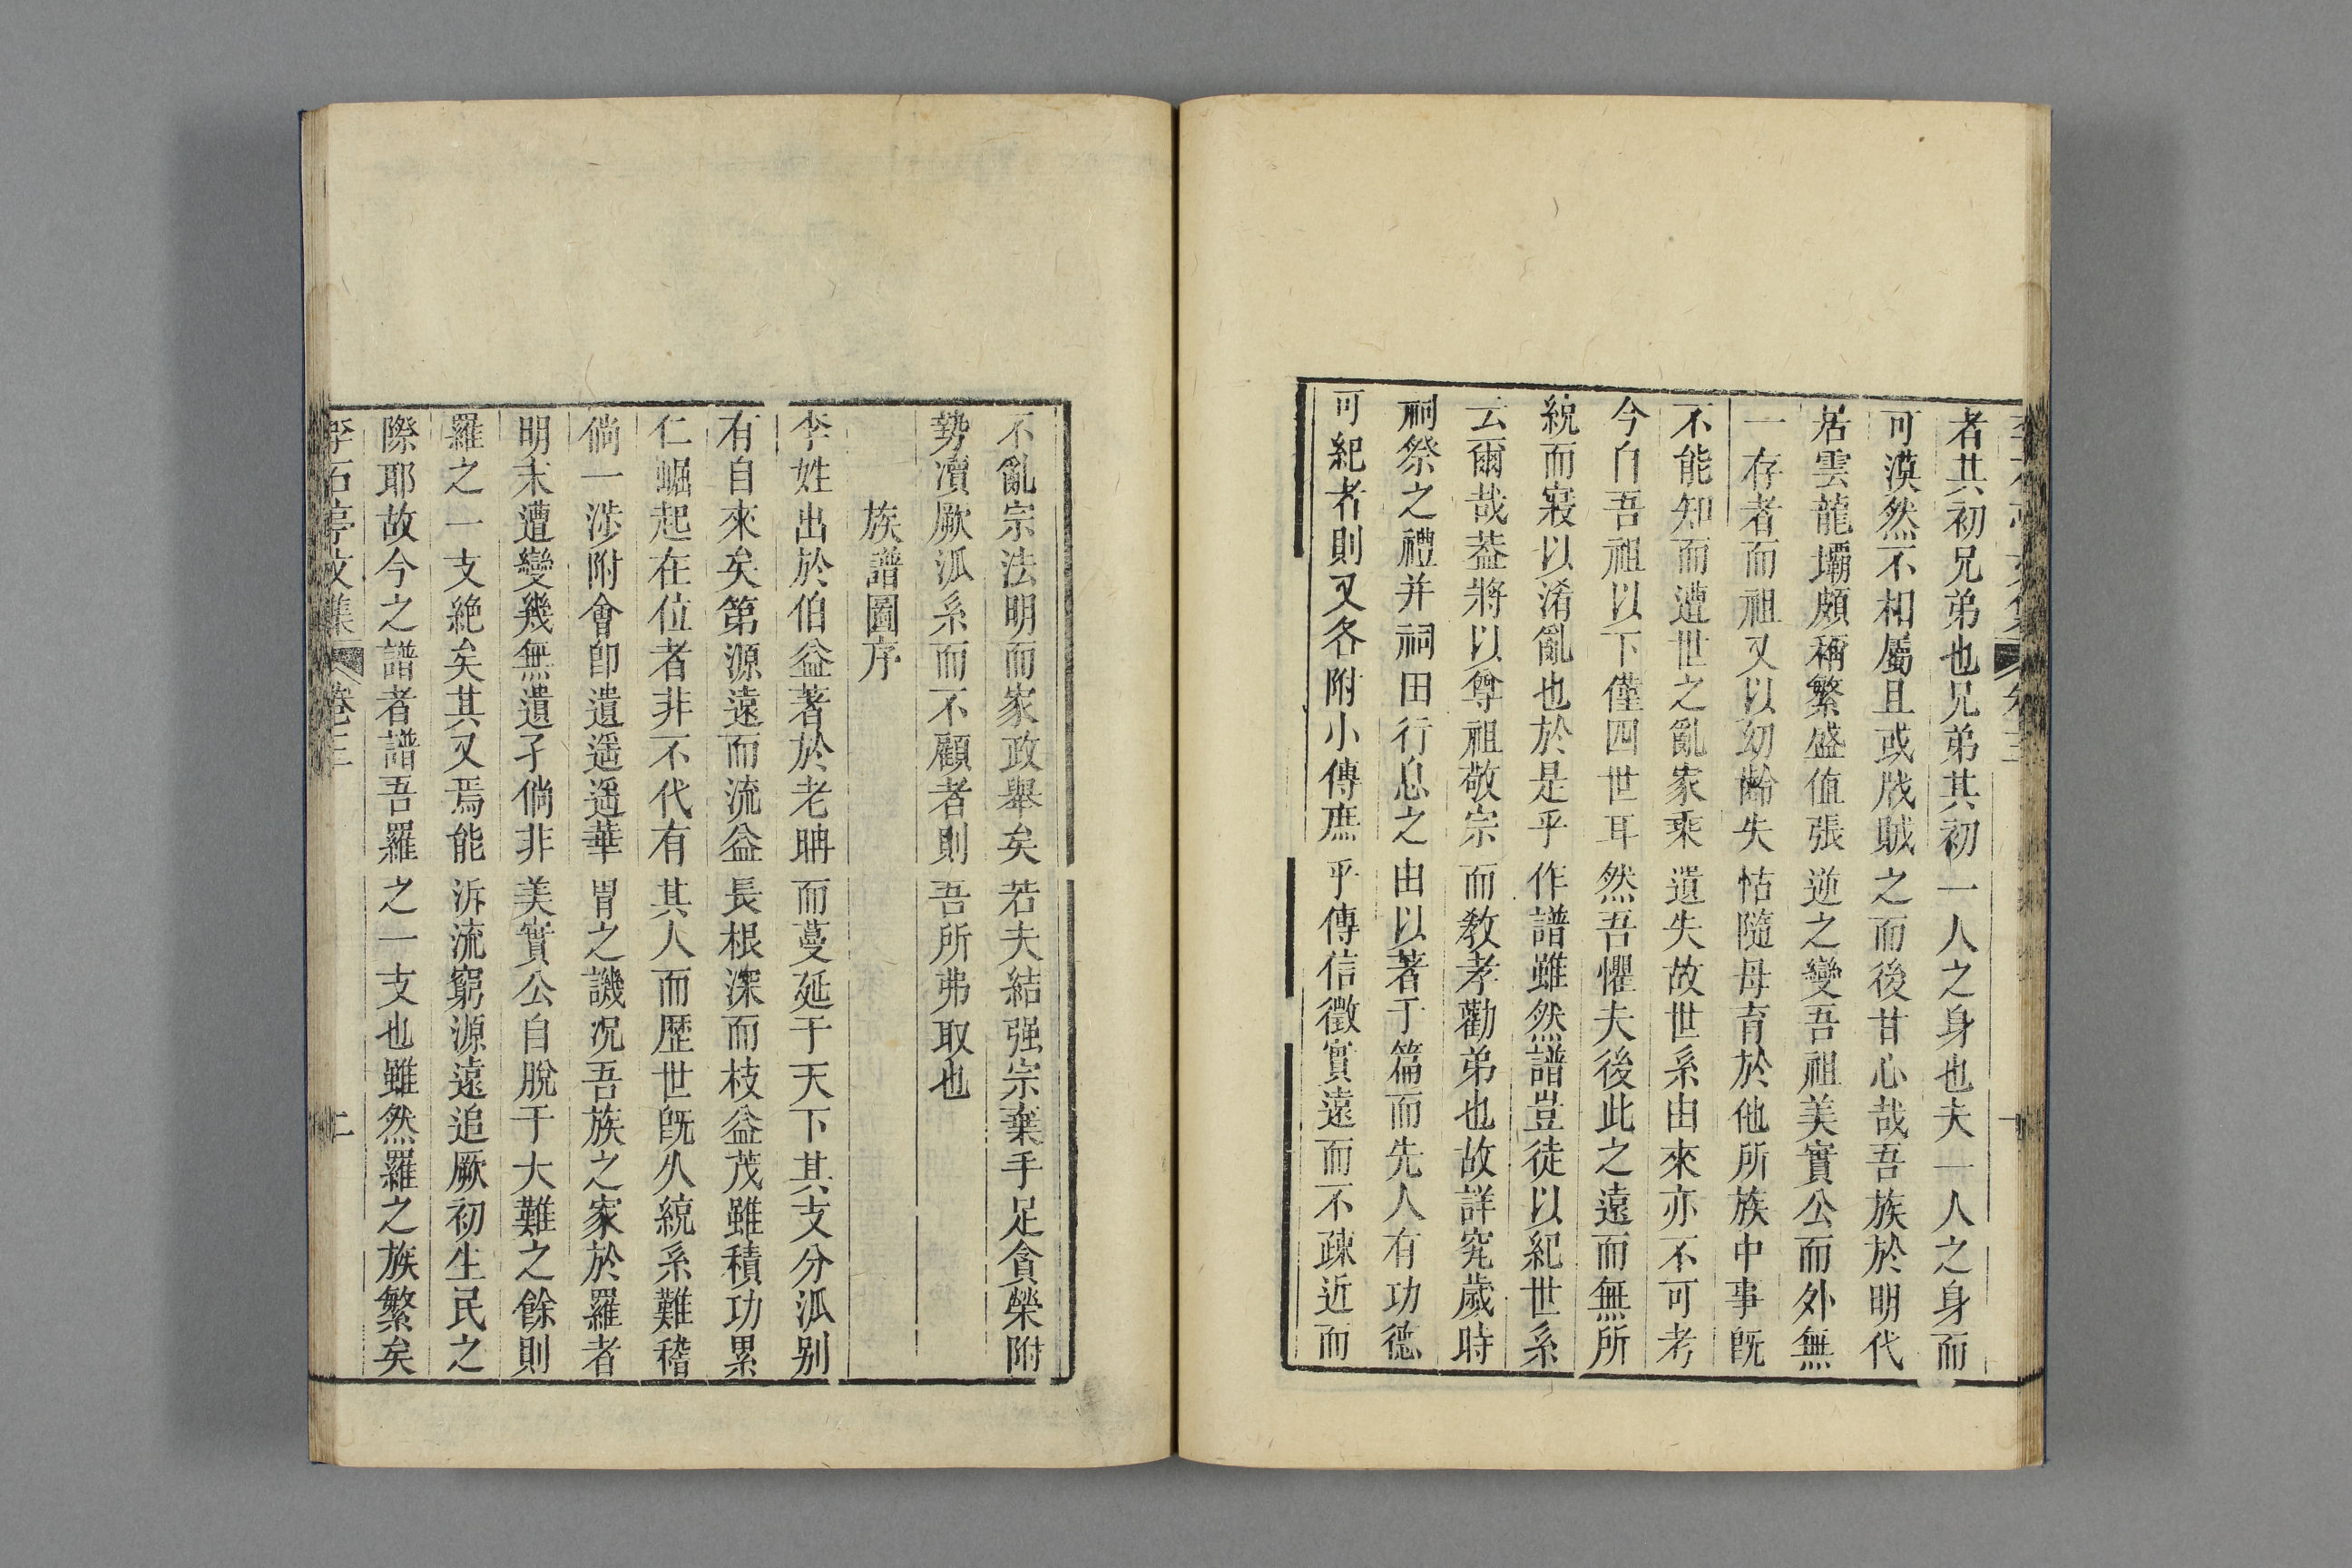 者其初兄弟也兄弟其初一人之身也夫一人之身而
可漠然不相屬且或戕賊之而後甘心哉吾族於明代
居雲龍壩頗稱繁盛值張逆之變吾祖美實公而外無
一存者而祖又以幼齡失怙隨母育於他所族中事旣
不能知而遭世之亂家乘遺失故世系由來亦不可考
今自吾祖以下僅四世耳然吾懼夫後此之遠而無所
統而寖以淆亂也於是乎作譜雖然譜豈徒以紀世系
云爾哉葢將以尊祖敬宗而教孝勸弟也故詳究歲時
祠祭之禮并祠田行息之由以著于篇而先人有功德
可紀者則又各附小傳庶乎傳信徵實遠而不疎近而
不亂宗法明而家政舉矣若夫結强宗棄手足貪榮附
勢凟厥泒系而不顧者則吾所弗取也
族譜圖序
李姓出於伯益著於老聃而蔓延于天下其支分泒别
有自來矣第源遠而流益長根深而枝益茂雖積功累
仁崛起在位者非不代有其人而歷世旣久統系難稽
倘一涉附會卽遺遥遥華胄之譏况吾族之家於羅者
明末遭變幾無遺孑倘非美實公自脫于大難之餘則
羅之一支絶矣其又焉能泝流窮源遠追厥初生民之
際耶故今之譜者譜吾羅之一支也雖然羅之族繁矣
李石亭文集 卷三